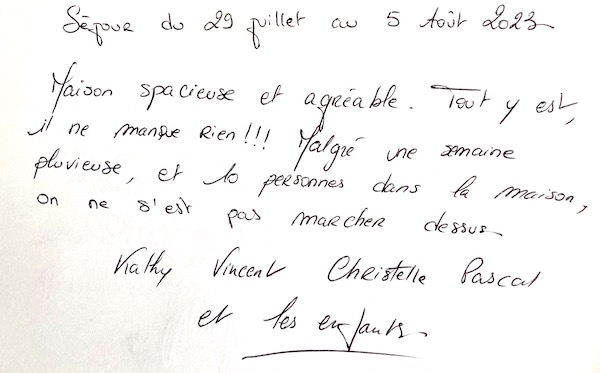 Séjour du 29 juillet au 5 Août 2023
Maison spacieuse et agréable. Tout y est,
il ne manque rien!!! Malgré une semaine
pluvieuse, et 10 personnes dans la maison,
on ne s'est pas marcher dessus
Kathy Vincent Christelle Pascal
et les enfants.